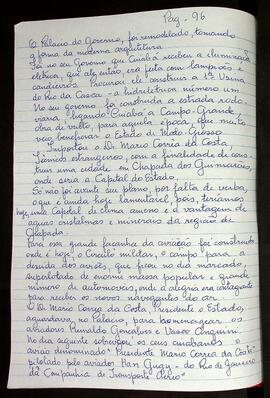 Pag - 96
O Palacio do Governo, foi remodelado, tomando
a forma da moderna arquitetura
Foi no seu Governo que Cuiabá recebeu a iluminação
elétrica, que até então, era feita com lampeões e
candieiros. Procurou ele construir a 1ª Usina
do Rio da Casca - a hidrelétrica número um
No seu governo foi construida a estrada rodo-
viaria, ligando Cuiabá a Campo-Grande,
obra de vulto, para aquela época, que muito
veio beneficiar o Estado de Mato-Grosso
Importou o Dr Mario Corrêa da Costa,
Técnicos estrangeiros, com a finalidade de cons-
truir uma cidade em Chapada dos Guimarães,
onde seria a Capital do Estado,
Só não foi avante seu plano, por falta de verba,
o que é ainda hoje lamentável, pois, teríamos
hoje, uma Capital de clima ameno e a vantagem de
aguas cristalinas e minerais da região de
Chapada.
Para essa grande façanha da aviação foi construido
onde é hoje o Circulo militar, o campo para a
descida dos aviões, que ficou no dia marcado,
superlotado de enorme massa popular e grande
número de automóveis, onde a alegria era contagiante
para receber os novos navegantes do ar
O Dr Mario Corrêa da Costa, Presidente do Estado,
aguardava, no Palacio, para homenagear os
aviadores Rinaldo Gonçalves e Vasco Cinquini.
No dia seguinte sobrevoou os ceus cuiabanos o
avião denominado "Presidente Mario Corrêa da Costa"
pilotado pelo aviador Han - do Rio de Janeiro
da Companhia de Transporte Aéreo"